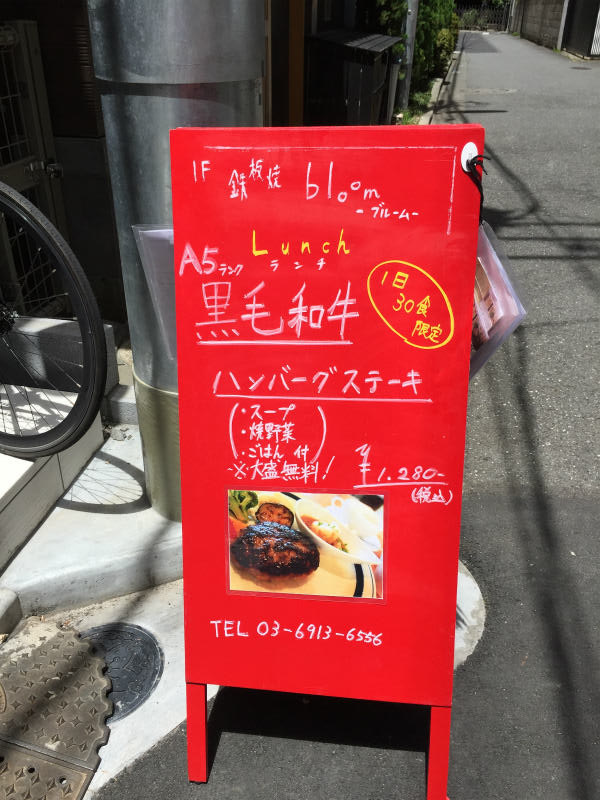 1F 鉄板焼 bloom
-ブルーム-
Lunch
ランチ
A5ランク
黒毛和牛
1日
30食
限定
ハンバーグステーキ
(・スープ
・焼野菜
・ごはん 付)
※大盛無料!
¥1,280-
(税込)
TEL 03-6913-6556